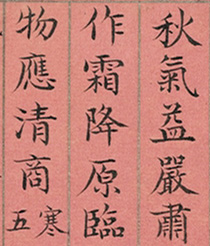 秋氣益嚴肅
作霜降原臨
物應清商寒五